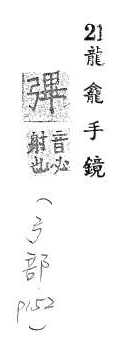 21 龍龕手鏡
彃
音必
射也
(弓部 p152)